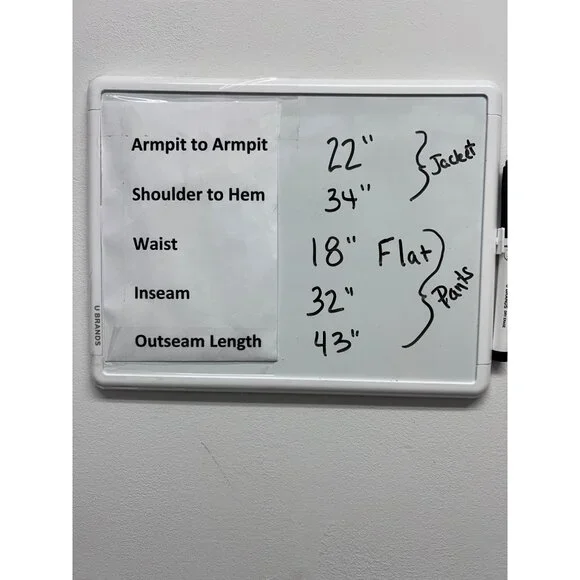 Armpit to Armpit 22" Jacket
Shoulder to Hem 34"
Waist 18" Flat
Inseam 32" Pants
Outseam Length 43"
U BRANDS